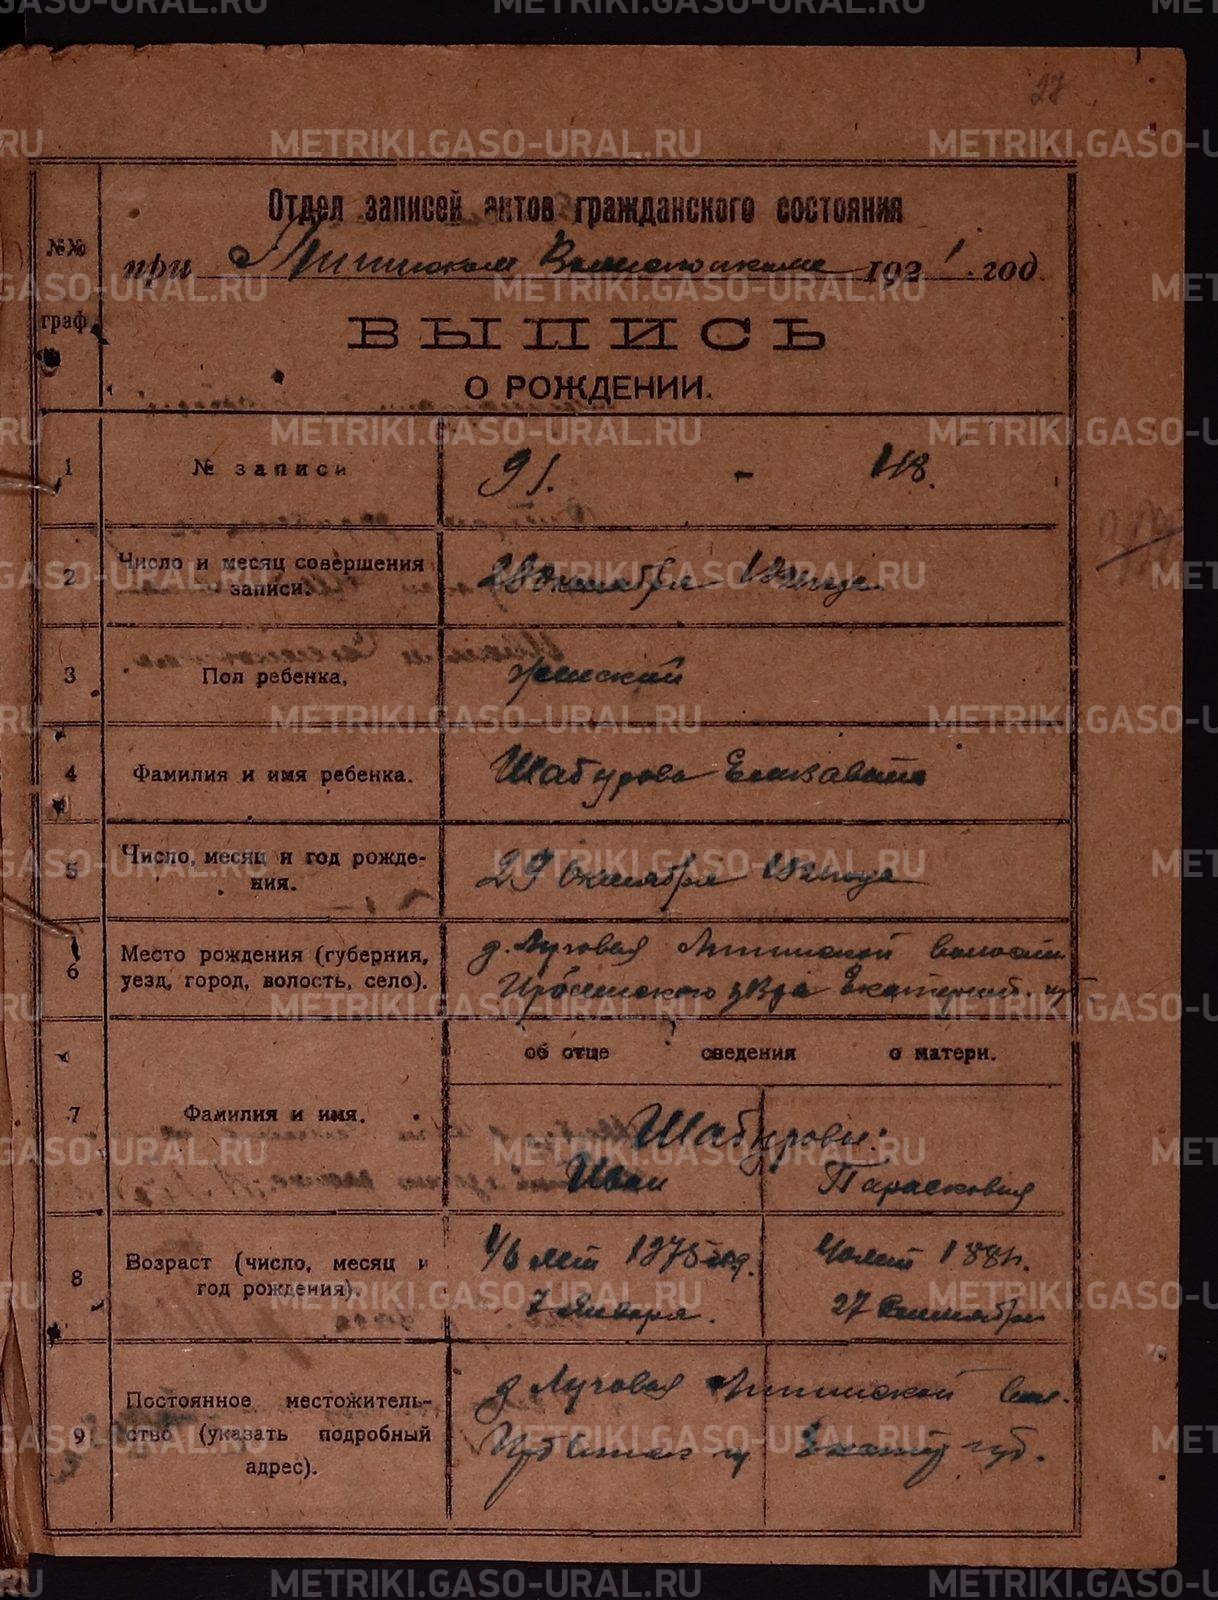 27
Отдел записей актов гражданского состояния
при Липинском Волисполкоме 1921 год
№№ граф.
ВЫПИСЬ
О РОЖДЕНИИ.
1 № записи 91. - 118.
2 Число и месяц совершения записи. 28 Октября 192 года
3 Пол ребенка, женский
4 Фамилия и имя ребенка. Шабурова Елизавета
5 Число, месяц и год рождения. 29 Октября 192 года
6 Место рождения (губерния, д. Луговая Липинской волости
уезд, город, волость, село). Ирбитского уезда Екатеринб. губ
об отце сведения о матери.
7 Фамилия и имя. Шабуровы:
Иван Парасковия
8 Возраст (число, месяц и 46 лет 1875 год. 40 лет 1881 г.
год рождения). 7 Января. 27 Сентября
9 Постоянное местожитель- д Луговая Липинской вол.
ство (указать подробный Ирбитск у Екатер губ.
адрес).
METRIKI.GASO-URAL.RU